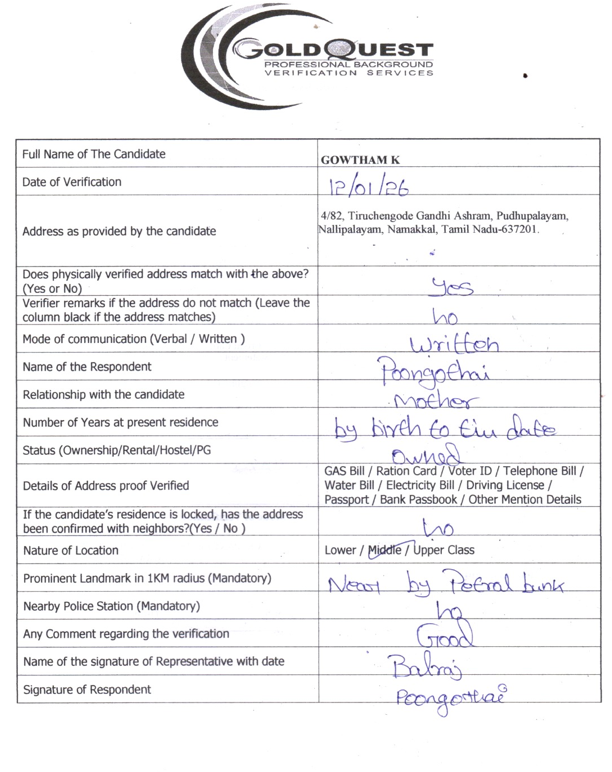 GOLDQUEST
PROFESSIONAL BACKGROUND
VERIFICATION SERVICES
Full Name of The Candidate
GOWTHAM K
Date of Verification
12/01/26
Address as provided by the candidate
4/82, Tiruchengode Gandhi Ashram, Pudhupalayam,
Nallipalayam, Namakkal, Tamil Nadu-637201.
Does physically verified address match with the above?
(Yes or No)
Yes
Verifier remarks if the address do not match (Leave the
column black if the address matches)
no
Mode of communication (Verbal / Written )
Written
Name of the Respondent
Poongothai
Relationship with the candidate
Mother
Number of Years at present residence
by birth to tiu date
Status (Ownership/Rental/Hostel/PG
Owned
Details of Address proof Verified
GAS Bill / Ration Card / Voter ID / Telephone Bill /
Water Bill / Electricity Bill / Driving License /
Passport / Bank Passbook / Other Mention Details
If the candidate's residence is locked, has the address
been confirmed with neighbors?(Yes / No )
no
Nature of Location
Lower / Middle / Upper Class
Prominent Landmark in 1KM radius (Mandatory)
Near by Petral bunk
Nearby Police Station (Mandatory)
no
Any Comment regarding the verification
Good
Name of the signature of Representative with date
Balraj
Signature of Respondent
Poongothai